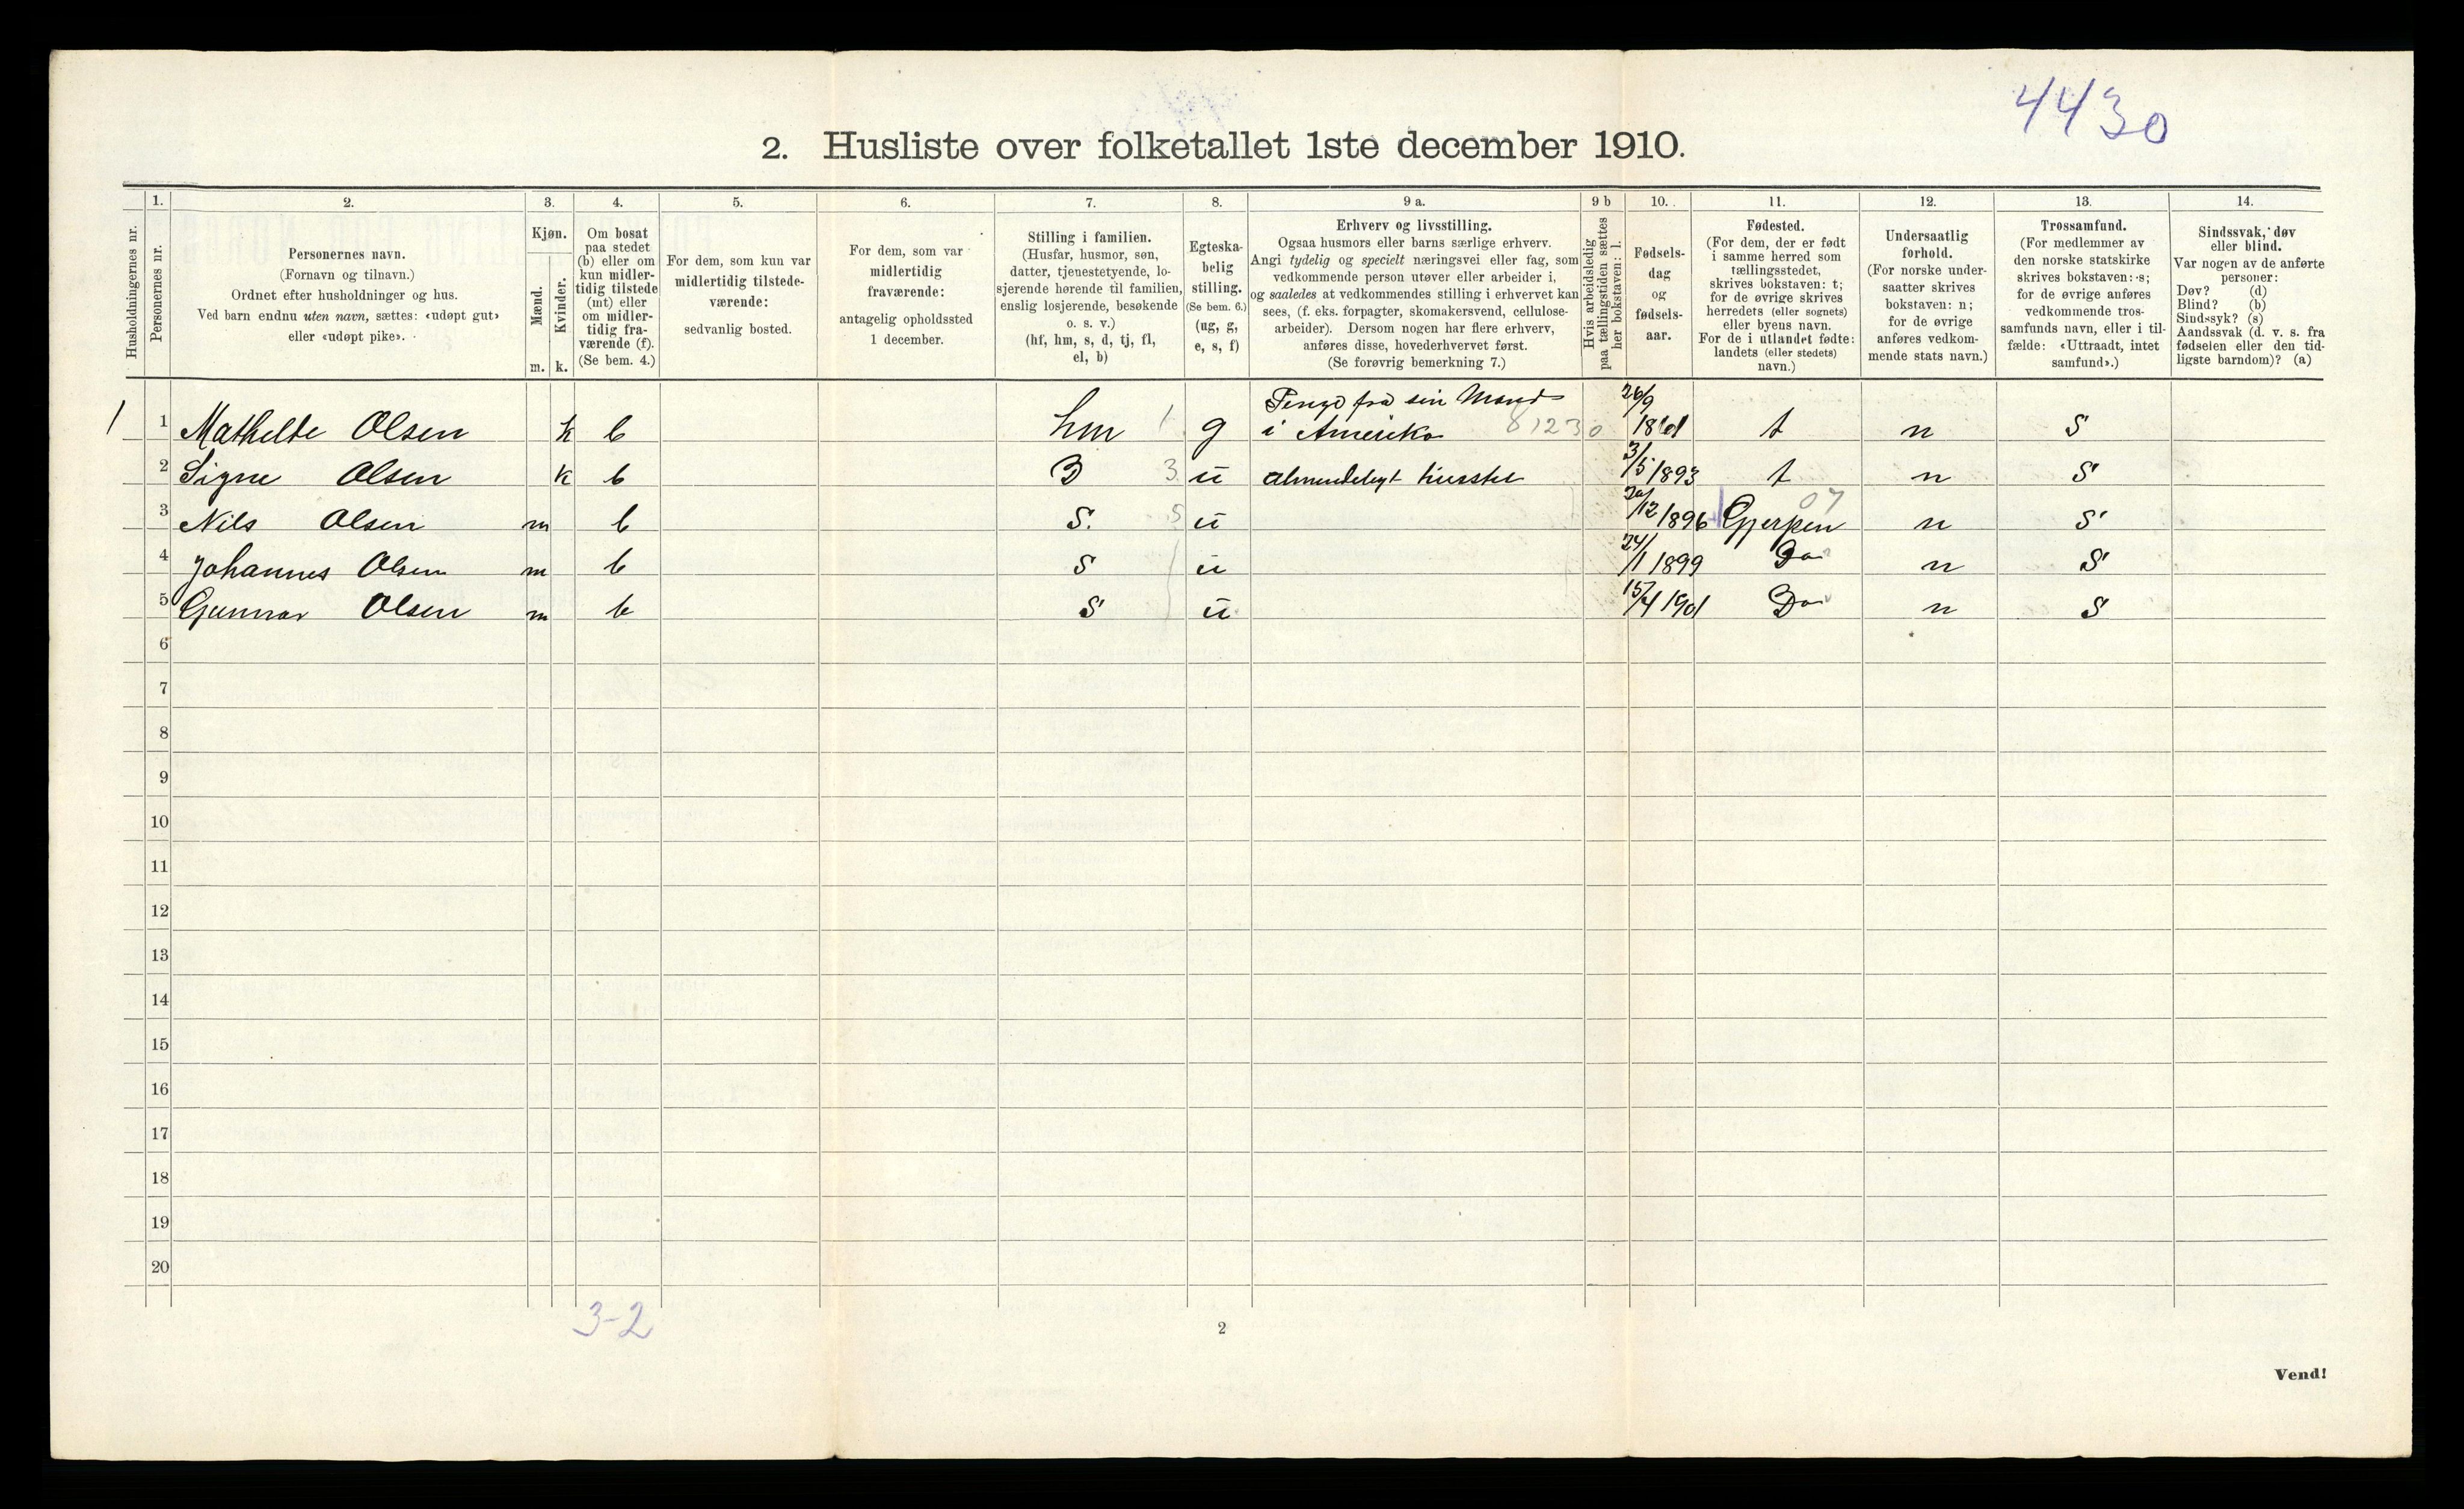 4430
2. Husliste over folketallet 1ste december 1910.
Husholdningernes nr.
1.
Personernes nr.
2.
Personernes navn.
(Fornavn og tilnavn.)
Ordnet efter husholdninger og hus.
Ved barn endnu uten navn, sættes: «udøpt gut»
eller «udøpt pike».
3.
Kjøn.
Mænd.
Kvinder.
m. k.
4.
Om bosat
paa stedet
(b) eller om
kun midler-
tidig tilstede
(mt) eller
om midler-
tidig fra-
værende (f).
(Se bem. 4.)
5.
For dem, som kun var
midlertidig tilstede-
værende:
sedvanlig bosted.
6.
For dem, som var
midlertidig
fraværende:
antagelig opholdssted
1 december.
7.
Stilling i familien.
(Husfar, husmor, søn,
datter, tjenestetyende, lo-
sjerende hørende til familien,
enslig losjerende, besøkende
o. s. v.)
(hf, hm, s, d, tj, fl,
el, b)
8.
Egteska-
belig
stilling.
(Se bem. 6.)
(ug, g,
e, s, f)
9 a.
Erhverv og livsstilling.
Ogsaa husmors eller barns særlige erhverv.
Angi tydelig og specielt næringsvei eller fag, som
vedkommende person utøver eller arbeider i,
og saaledes at vedkommendes stilling i erhvervet kan
sees, (f. eks. forpagter, skomakersvend, cellulose-
arbeider). Dersom nogen har flere erhverv,
anføres disse, hovederhvervet først.
(Se forøvrig bemerkning 7.)
9 b
Hvis arbeidsledig
paa tællingstiden sættes
her bokstaven: l.
10.
Fødsels-
dag
og
fødsels-
aar.
11.
Fødested.
(For dem, der er født
i samme herred som
tællingsstedet,
skrives bokstaven: t;
for de øvrige skrives
herredets (eller sognets)
eller byens navn.
For de i utlandet fødte:
landets (eller stedets)
navn.)
12.
Undersaatlig
forhold.
(For norske under-
saatter skrives
bokstaven: n;
for de øvrige
anføres vedkom-
mende stats navn.)
13.
Trossamfund.
(For medlemmer av
den norske statskirke
skrives bokstaven: s;
for de øvrige anføres
vedkommende tros-
samfunds navn, eller i til-
fælde: «Uttraadt, intet
samfund».)
14.
Sindssvak, døv
eller blind.
Var nogen av de anførte
personer:
Døv? (d)
Blind? (b)
Sindssyk? (s)
Aandssvak (d. v. s. fra
fødselen eller den tid-
ligste barndom)? (a)
Penge fra sin Mand 26/9
1 1 Mathelde Olsen k b hm 1 g i Amerika 81230 1861 t n S
2 Signe Olsen k b D 3 u almindeligt 3/5 1893 t n S
07
3 Nils Olsen m b S. 5 u 20/12 1896 Gjerpen n S
4 Johannes Olsen m b S u 24/1 1899 Do n S
5 Gunnar Olsen m b S u 15/4 1901 Do n S
6
7
8
9
10
11
12
13
14
15
16
17
18
19
20
3-2
2
Vend!